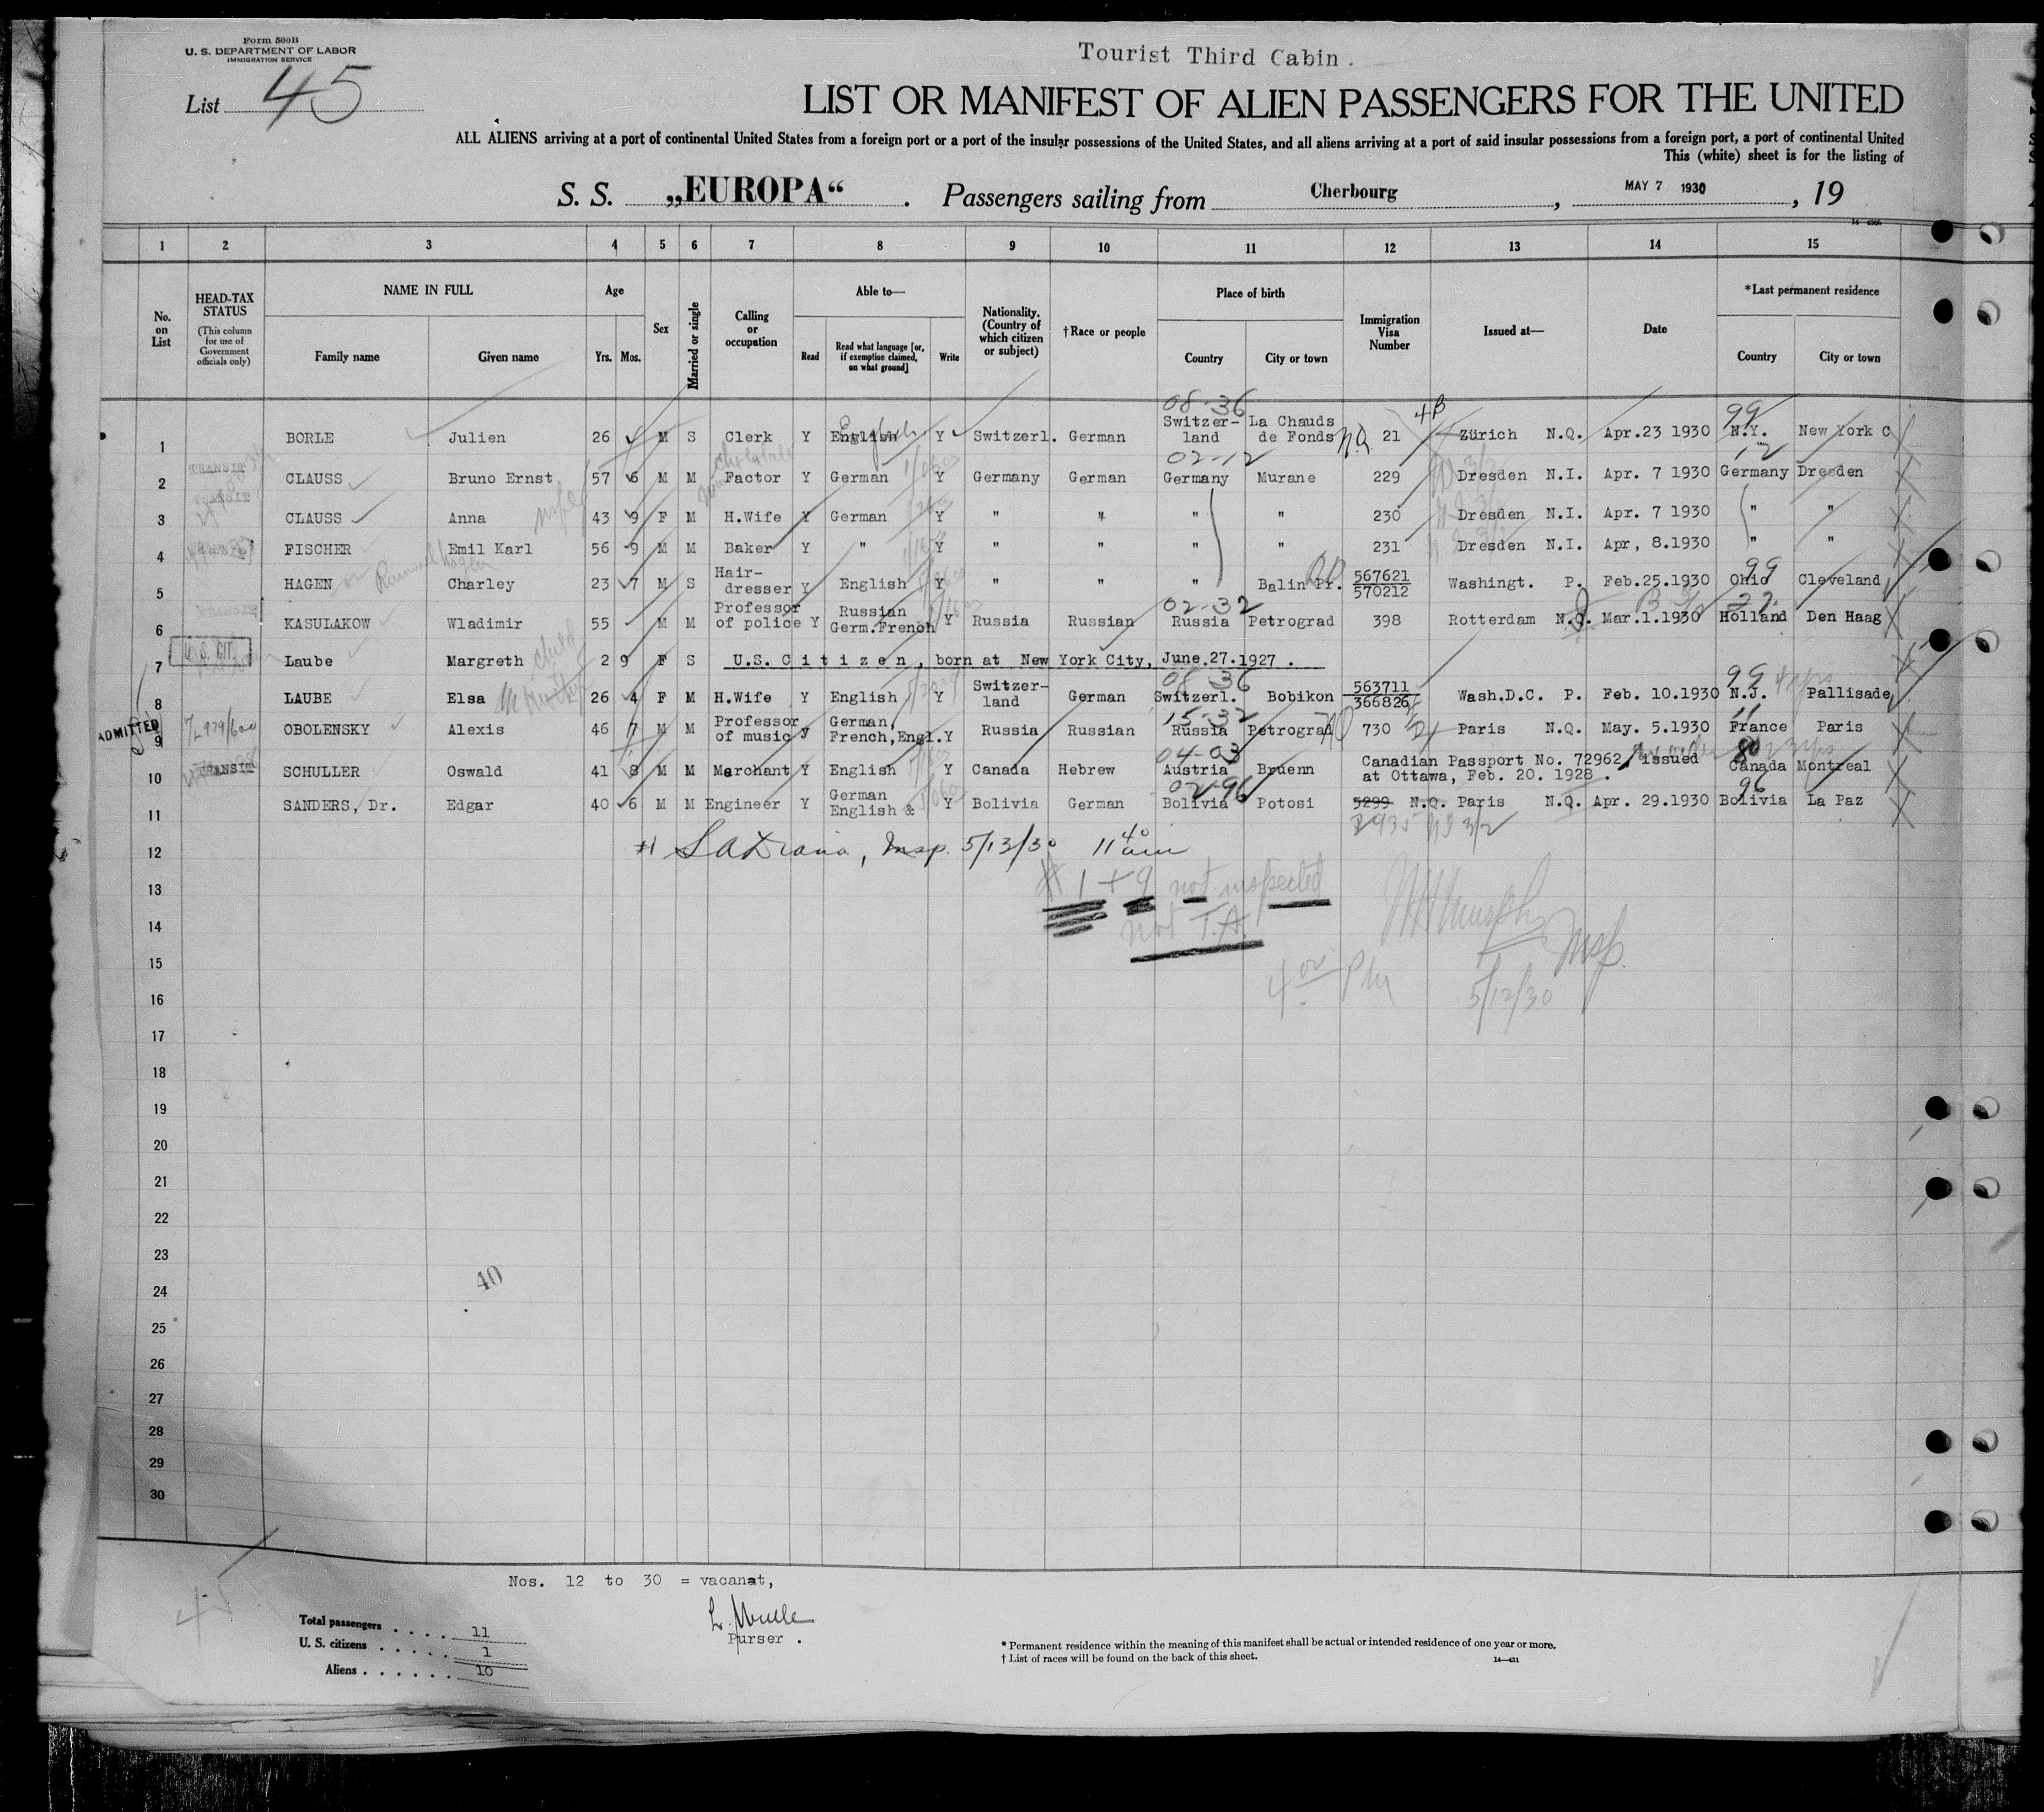 Form 500B
U. S. DEPARTMENT OF LABOR
IMMIGRATION SERVICE
Tourist Third Cabin .
List 45
LIST OR MANIFEST OF ALIEN PASSENGERS FOR THE UNITED
ALL ALIENS arriving at a port of continental United States from a foreign port or a port of the insular possessions of the United States, and all aliens arriving at a port of said insular possessions from a foreign port, a port of continental United
This (white) sheet is for the listing of
S. S. „EUROPA“ . Passengers sailing from Cherbourg , MAY 7 1930 , 19
1 2 3 4 5 6 7 8 9 10 11 12 13 14 15
No. on List
HEAD-TAX STATUS (This column for use of Government officials only)
NAME IN FULL
Family name Given name
Age
Yrs. Mos.
Sex
Married or single
Calling or occupation
Able to—
Read
Read what language [or, if exemption claimed, on what ground]
Write
Nationality. (Country of which citizen or subject)
†Race or people
Place of birth
Country City or town
Immigration Visa Number
Issued at—
Date
*Last permanent residence
Country City or town
08-36 4B 99
1 BORLE Julien 26 M S Clerk Y English Y Switzerl. German Switzer-land La Chauds de Fonds N.Q. 21 Zürich N.Q. Apr.23 1930 N.Y. New York C
02-12 12
2 TRANSIT CLAUSS Bruno Ernst 57 6 M M Factor Y German Y Germany German Germany Murane 229 Dresden N.I. Apr. 7 1930 Germany Dresden
3 CLAUSS Anna 43 9 F M H.Wife Y German Y " " " " 230 Dresden N.I. Apr. 7 1930 " "
4 FISCHER Emil Karl 56 9 M M Baker Y " Y " " " " 231 Dresden N.I. Apr, 8.1930 " "
99
5 HAGEN Charley 23 7 M S Hair-dresser Y English Y " " " Balin Pr. 567621 570212 Washingt. P. Feb.25.1930 Ohio Cleveland
02-32
6 KASULAKOW Wladimir 55 M M Professor of police Y Russian Germ.French Y Russia Russian Russia Petrograd 398 Rotterdam N.Q. Mar.1.1930 Holland Den Haag
7 U.S. CIT. Laube Margreth child 2 9 F S U.S. Citizen, born at New York City, June.27.1927 .
08 36 99
8 LAUBE Elsa 26 4 F M H.Wife Y English Y Switzer-land German Switzerl. Bobikon 563711 366826 Wash.D.C. P. Feb. 10.1930 N.J. Pallisade
15-32 11
ADMITTED 9 OBOLENSKY Alexis 46 7 M M Professor of music y German, French,Engl. Y Russia Russian Russia Petrograd 730 Paris N.Q. May. 5.1930 France Paris
04-03 80
10 TRANSIT SCHULLER Oswald 41 8 M M Merchant Y English Y Canada Hebrew Austria Bruenn Canadian Passport No. 72962, issued at Ottawa, Feb. 20. 1928 . Canada Montreal
02-96 96
11 SANDERS, Dr. Edgar 40 6 M M Engineer Y German English & Y Bolivia German Bolivia Potosi 5299 N.Q. Paris N.Q. Apr. 29.1930 Bolivia La Paz
12 #1 Insp. 5/13/30 11 40 am
13 # 1 + 9 not inspected
14 not T.A.
15 Insp.
16 4 PM 5/12/30
17
18
19
20
21
22
23
24 40
25
26
27
28
29
30
Nos. 12 to 30 = vacanat,
Purser .
Total passengers . . . . 11
U. S. citizens . . . . . . 1
Aliens . . . . . . . 10
* Permanent residence within the meaning of this manifest shall be actual or intended residence of one year or more.
† List of races will be found on the back of this sheet.
14—431